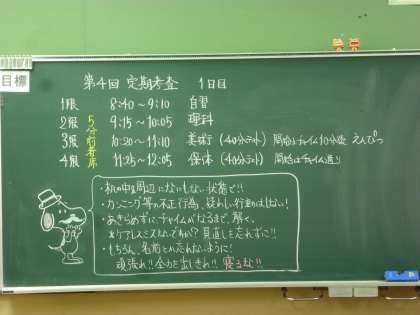 目標
第4回 定期考査 1日目
1限 8:40～9:10 自習
2限 9:15～10:05 理科
3限 10:20～11:10 美術 (40分テスト) 開始はチャイム10分後 えんぴつ
4限 11:25～12:05 保体 (40分テスト) 開始はチャイム通り
5分前着席
・机の中、周辺になにもない状態で!!
・カンニング等の不正行為、疑わしい行動はしない!
・あきらめずに、チャイムがなるまで、解く。
ケアレスミスないですか? 見直しを忘れずに!!
・もちろん、名前とか忘れないように!
頑張れ!! 全力を出しきれ!! 寝るな!!